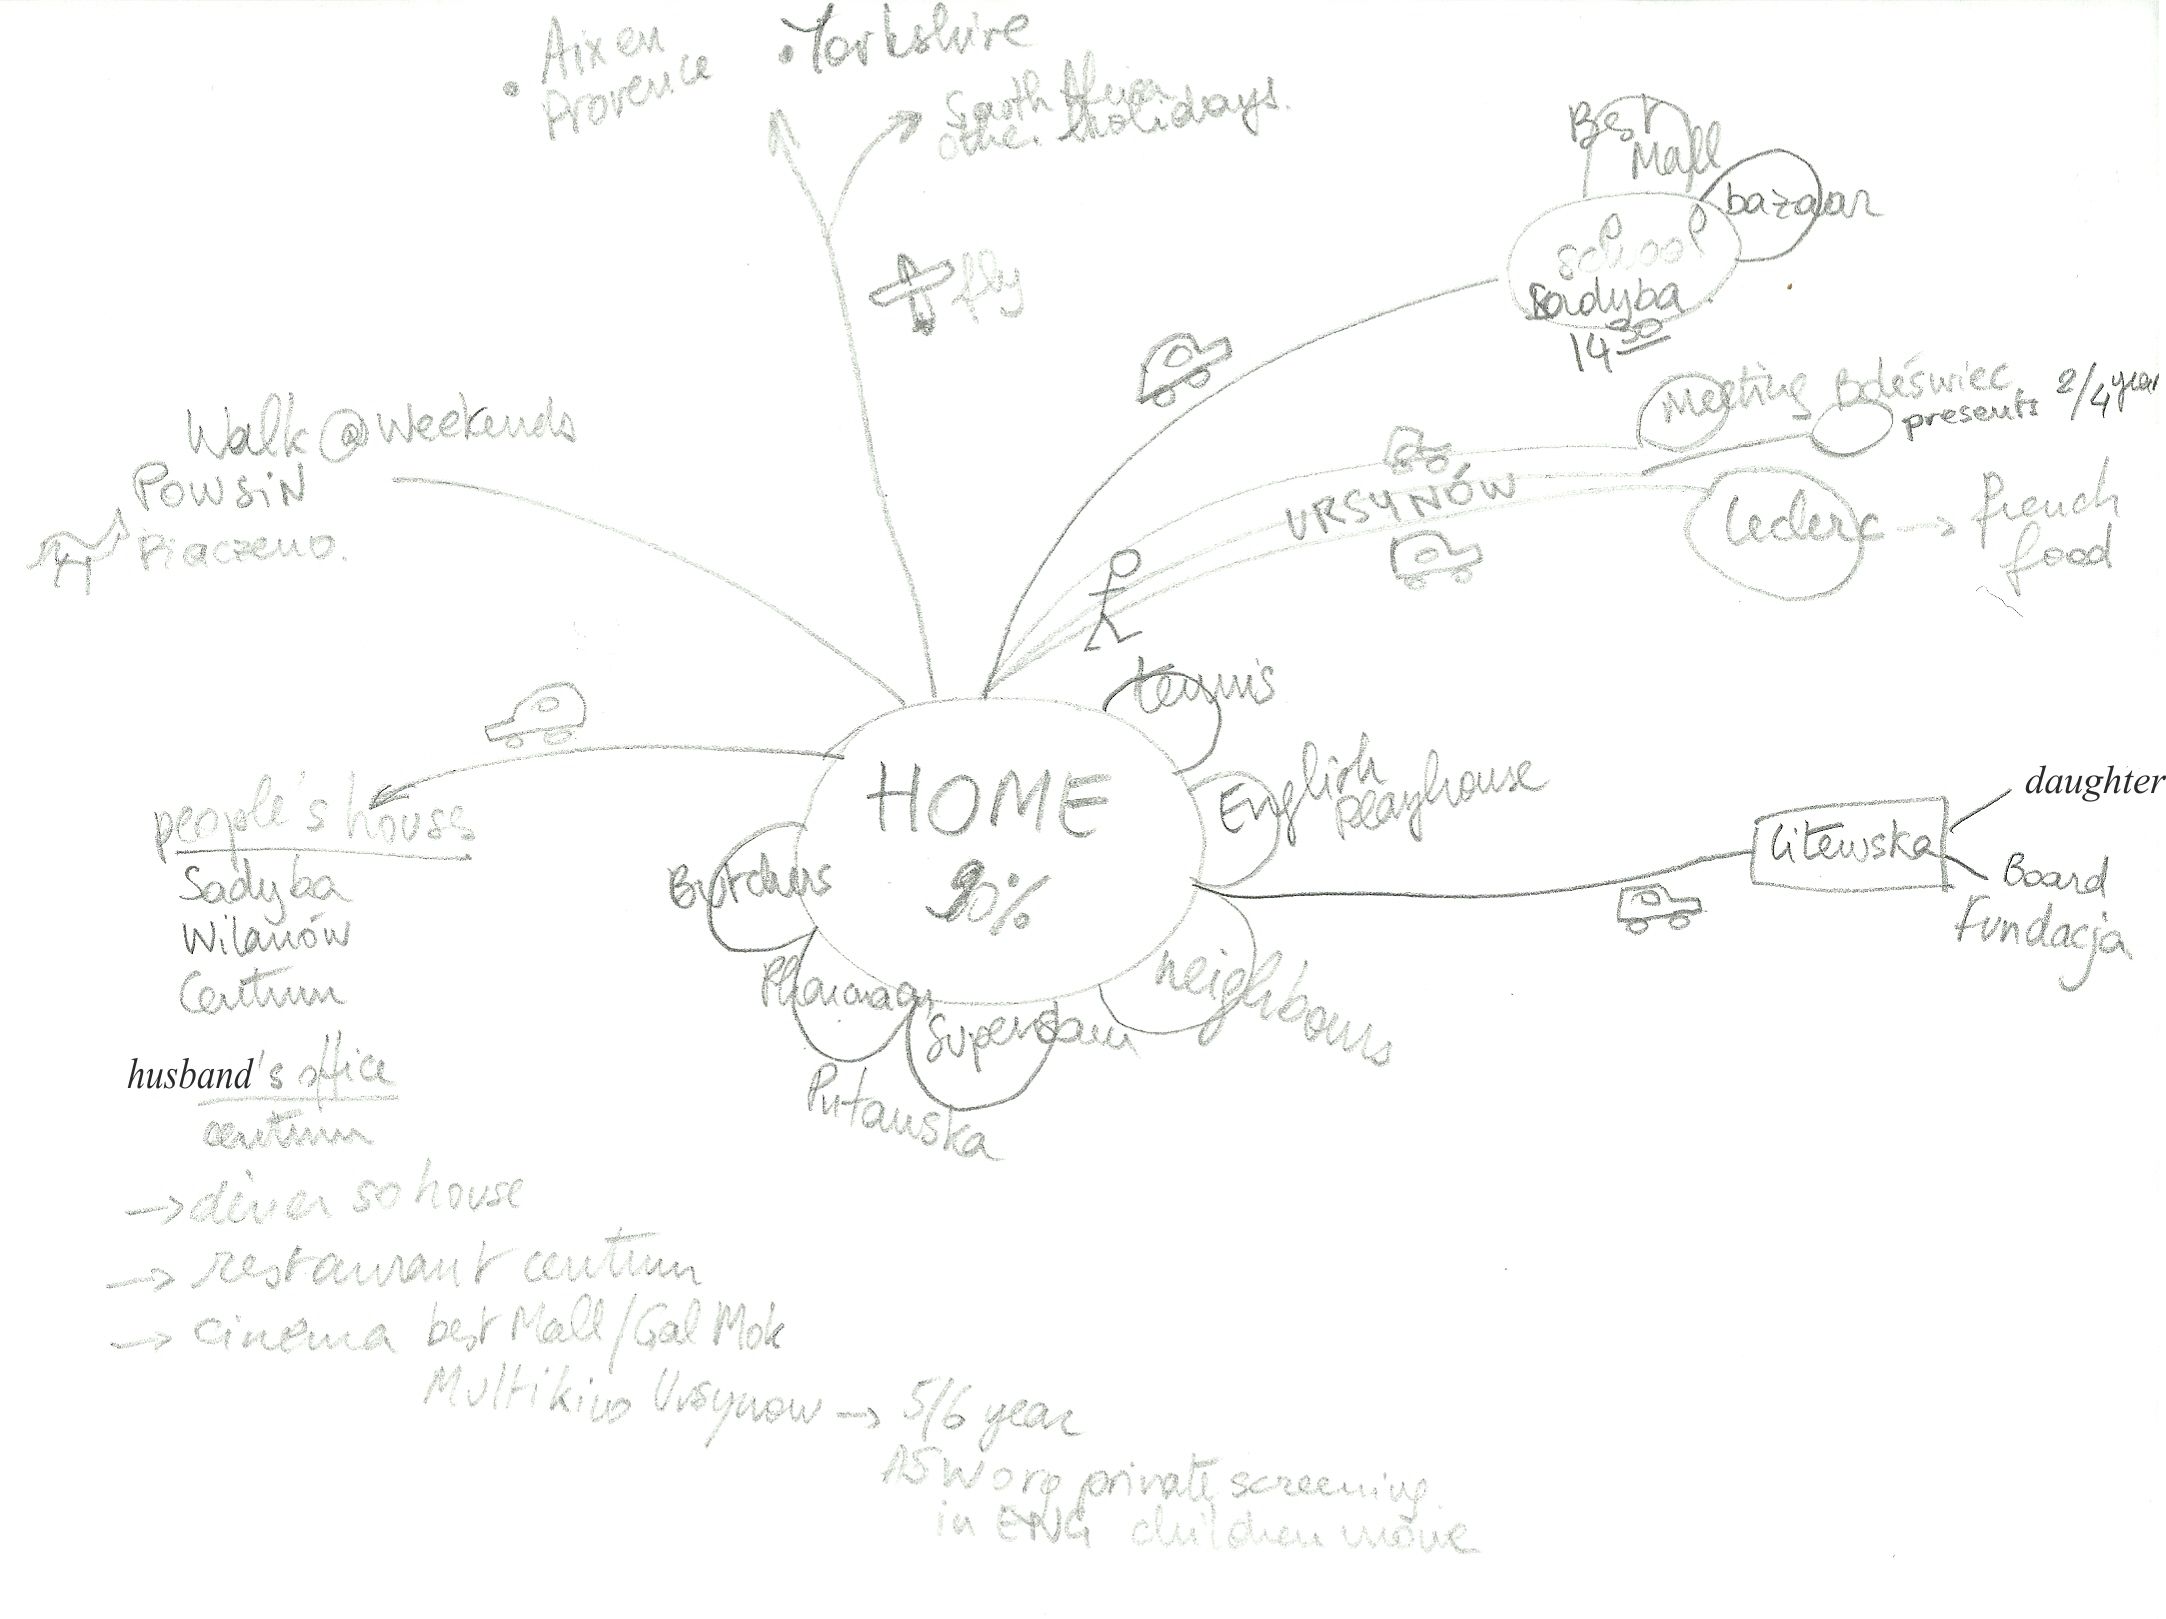 Aix en
Provence
Yorkshire
South Africa
other holidays.
fly
Best
Mall
bazaar
school
Sadyba
14 30
Meeting
presents 2/4 year
URSYNÓW
Leclerc → french
food
Walk @ Weekends
POWSIN
tennis
English
playhouse
HOME
90%
Butchers
Pharmacy
Supersam
Puławska
neighbours
Litewska
daughter
Board
Fundacja
people's houses
Sadyba
Wilanów
Centrum
husband's office
centrum
→ dinner so house
→ restaurant centrum
→ cinema best Mall/Gal Mok
Multikino Ursynow → 5/6 year
ASW org private screening
in ENG children movie